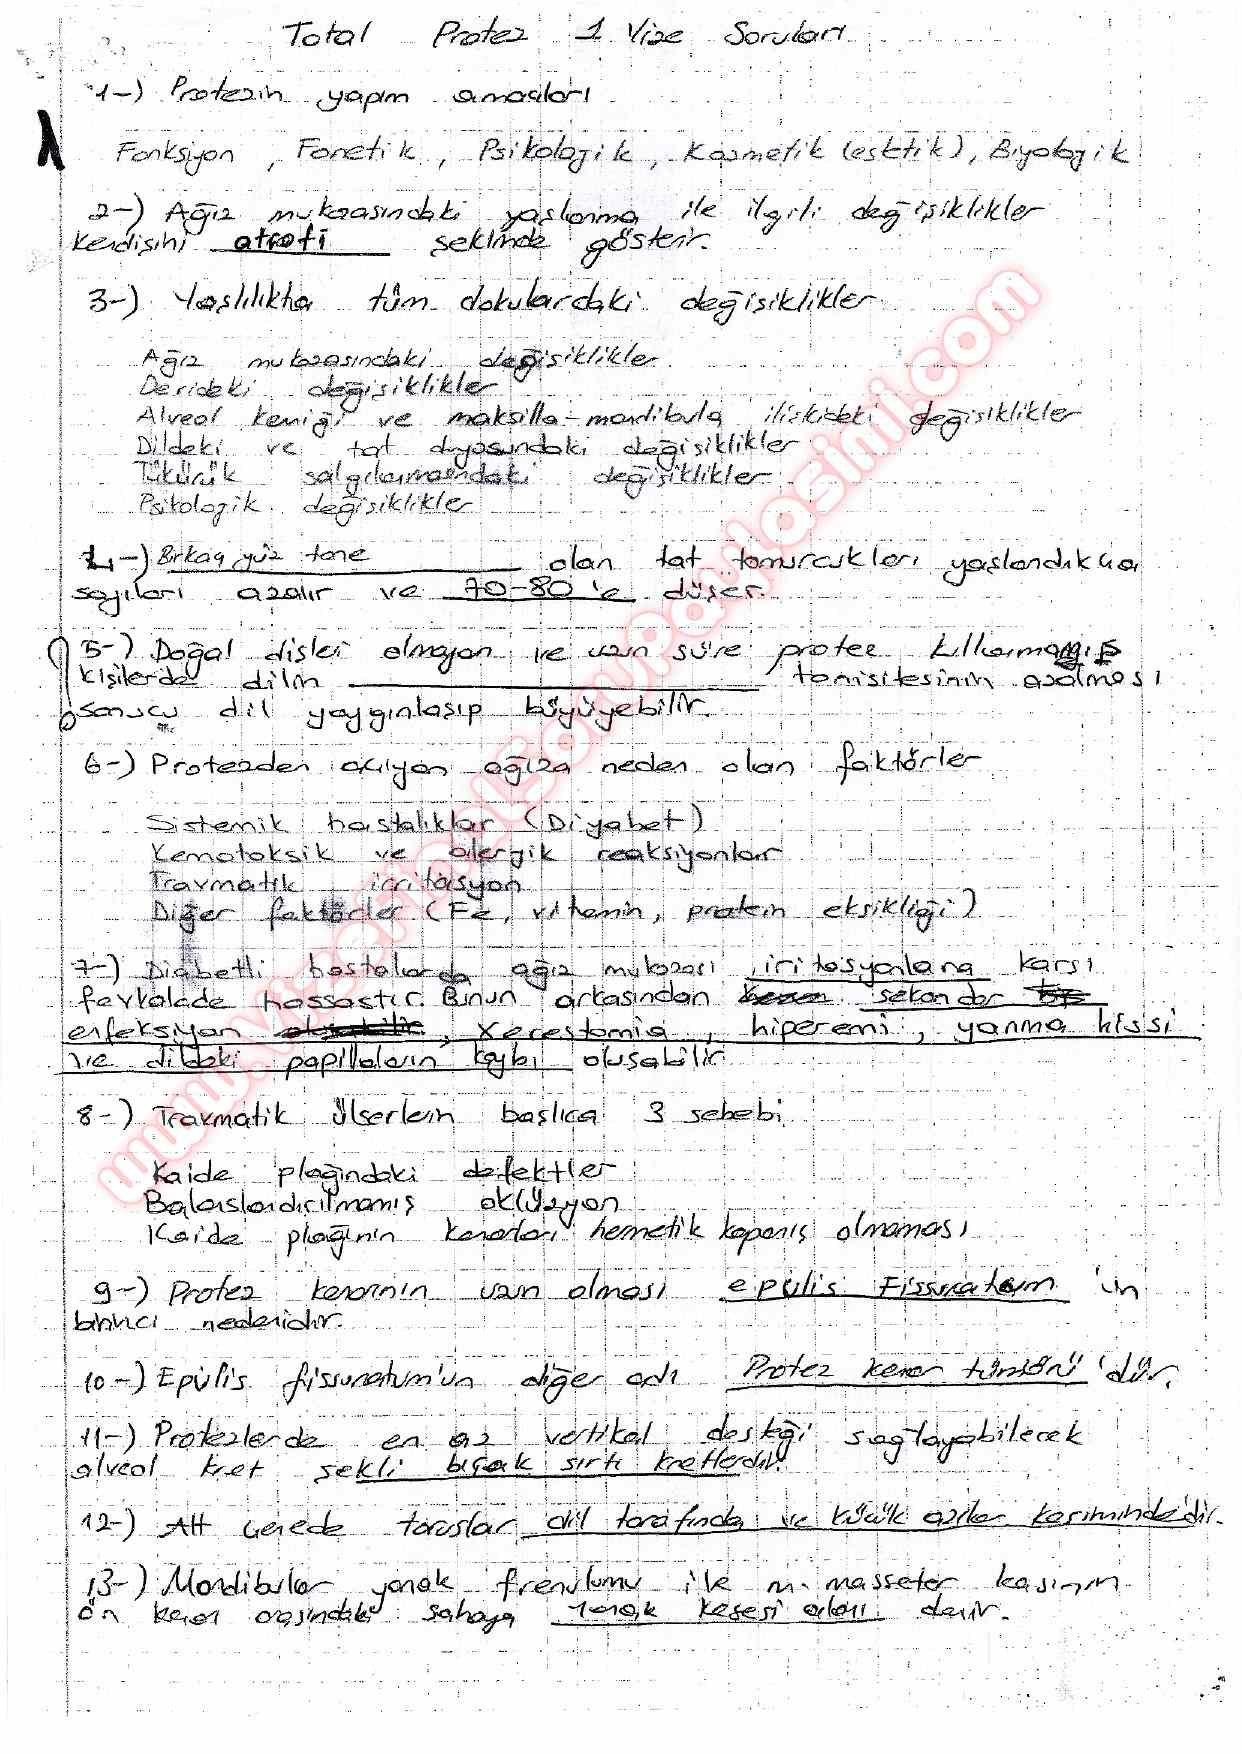 Total Protez 1 Vize Soruları
1-) Protezin yapım amaçları
Fonksiyon, Fonetik, Psikolojik, Kozmetik (estetik), Biyolojik
2-) Ağız mukozasındaki yaşlanma ile ilgili değişiklikler
kendisini atrofi şeklinde gösterir.
3-) Yaşlılıkta tüm dokulardaki değişiklikler
Ağız mukozasındaki değişiklikler
Derideki değişiklikler
Alveol kemiği ve maksilla-mandibula ilişkideki değişiklikler
Dildeki ve tat duyusundaki değişiklikler
Tükürük salgılanmasındaki değişiklikler
Psikolojik değişiklikler
4-) Birkaç yüz tane olan tat tomurcukları yaşlandıkça
sayıları azalır ve 70-80'e düşer.
5-) Doğal dişleri olmayan ve uzun süre protez kullanmamış
kişilerde dilin tonisitesinin azalması
sonucu dil yaygınlaşıp büyüyebilir.
6-) Protezden acıyan ağıza neden olan faktörler
Sistemik hastalıklar (Diyabet)
Kemotoksik ve allerjik reaksiyonlar
Travmatik irritasyon
Diğer faktörler (Fe, vitamin, protein eksikliği)
7-) Diabetli hastalarda ağız mukozası iritasyonlara karşı
fevkalade hassastır. Bunun arkasından sekonder
enfeksiyon, xerestomia, hiperemi, yanma hissi
ve dildeki papillaların kaybı oluşabilir.
8-) Travmatik ülserlerin başlıca 3 sebebi
Kaide plağındaki defektler
Balanslandırılmamış oklüzyon
Kaide plağının kenarları hermetik kapanış olmaması
9-) Protez kenarının uzun olması epülis Fissuratum'un
birinci nedenidir.
10-) Epülis fissuratum'un diğer adı Protez kenar tümörü'dür.
11-) Protezlerde en az vertikal desteği sağlayabilecek
alveol kret şekli bıçak sırtı kretlerdir.
12-) Alt çenede toruslar dil tarafında ve küçük azılar kısmındadır.
13-) Mandibular yanak frenulumu ile m. masseter kasının
ön kenarı arasındaki sahaya Yanak kesesi alanı denir.
www.vizefinalsorupaylasimi.com